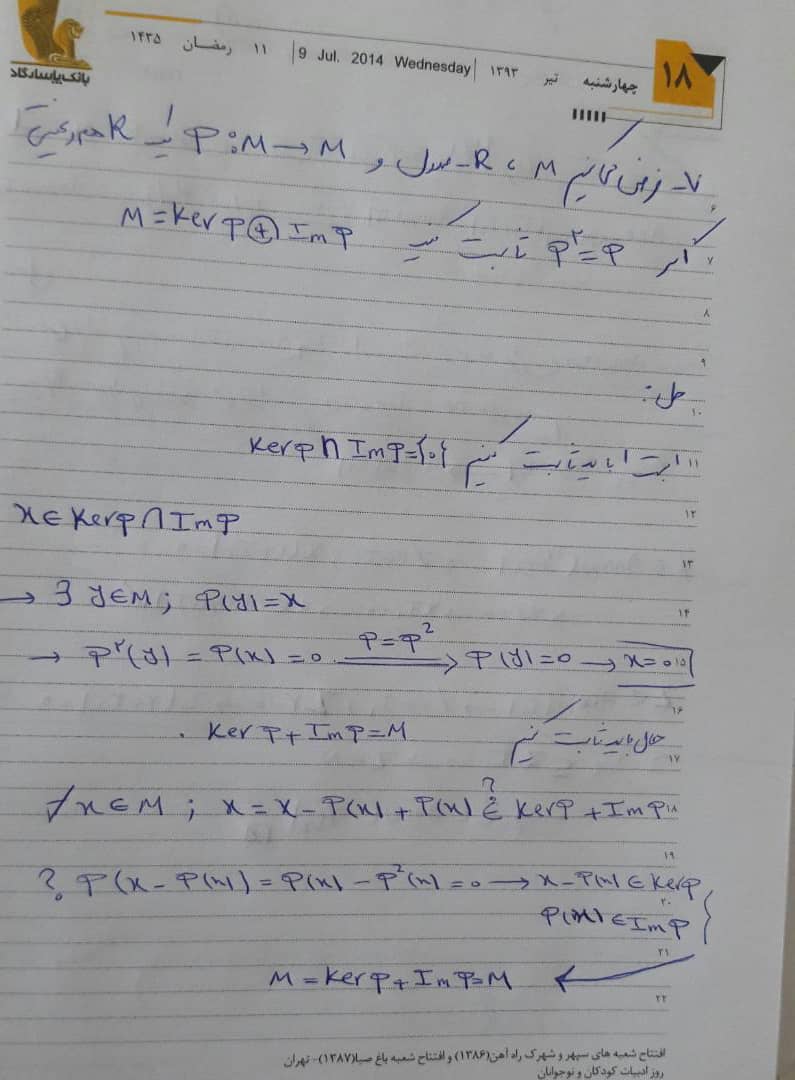 بانک پاسارگاد
۱۸ چهارشنبه تیر ۱۳۹۳ | 9 Jul. 2014 Wednesday | ۱۱ رمضان ۱۴۳۵
۷- فرض کنیم M ، R-مدول و φ: M → M یک R همریختی
۶
اگر φ²=φ ثابت کنید M = Ker φ ⊕ Im φ
۷
۸
۹
حل:
۱۰
ابتدا باید ثابت کنیم Ker φ ∩ Im φ = {۰}
۱۱
۱۲
x ∈ Ker φ ∩ Im φ
۱۳
→ ∃ y ∈ M ; φ(y) = x
۱۴
→ φ²(y) = φ(x) = ۰ —φ=φ²→ φ(y) = ۰ → x = ۰
۱۵
۱۶
حال باید ثابت کنیم Ker φ + Im φ = M .
۱۷
∀ x ∈ M ; x = x - φ(x) + φ(x) ∈? Ker φ + Im φ
۱۸
۱۹
? φ(x - φ(x)) = φ(x) - φ²(x) = ۰ → x - φ(x) ∈ Ker φ
۲۰
φ(x) ∈ Im φ }
۲۱
M = Ker φ + Im φ = M ←
۲۲
افتتاح شعبه های سپهر و شهرک راه آهن(۱۳۸۶) و افتتاح شعبه باغ صبا(۱۳۸۷)- تهران
روز ادبیات کودکان و نوجوانان